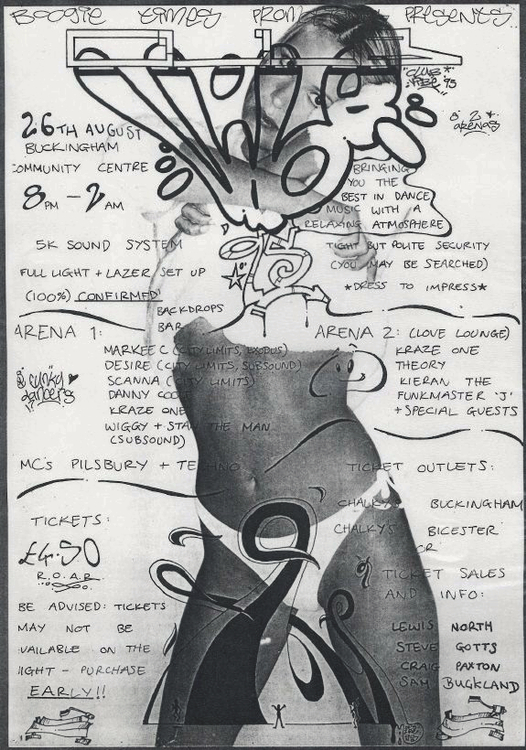 BOOGIE TIMES PROMOTIONS PRESENTS
VIBE
"CLUB VIBE" '95
& 2 arenas
26TH AUGUST
BUCKINGHAM
COMMUNITY CENTRE
8PM - 2AM
BRINGING
YOU THE
BEST IN DANCE
MUSIC WITH A
RELAXING ATMOSPHERE
95
5K SOUND SYSTEM
FULL LIGHT + LAZER SET UP
(100%) CONFIRMED!
BACKDROPS
BAR
TIGHT BUT POLITE SECURITY
(YOU MAY BE SEARCHED)
*DRESS TO IMPRESS*
ARENA 1:
MARKEE C (CITY LIMITS, EXODUS)
DESIRE (CITY LIMITS, SUBSOUND)
SCANNA (CITY LIMITS)
DANNY
KRAZE ONE
WIGGY + STAN THE MAN
(SUBSOUND)
funky dancers
MC's PILSBURY + TECHNO
ARENA 2: (LOVE LOUNGE)
KRAZE ONE
THEORY
KIERAN THE
FUNKMASTER 'J'
+ SPECIAL GUESTS
TICKETS:
£4.50
R.O.A.R
BE ADVISED: TICKETS
MAY NOT BE
AVAILABLE ON THE
NIGHT - PURCHASE
EARLY!!
TICKET OUTLETS:
CHALKY'S BUCKINGHAM
CHALKY'S BICESTER
OR
TICKET SALES
AND INFO:
LEWIS NORTH
STEVE GOTTS
CRAIG PAXTON
SAM BUCKLAND